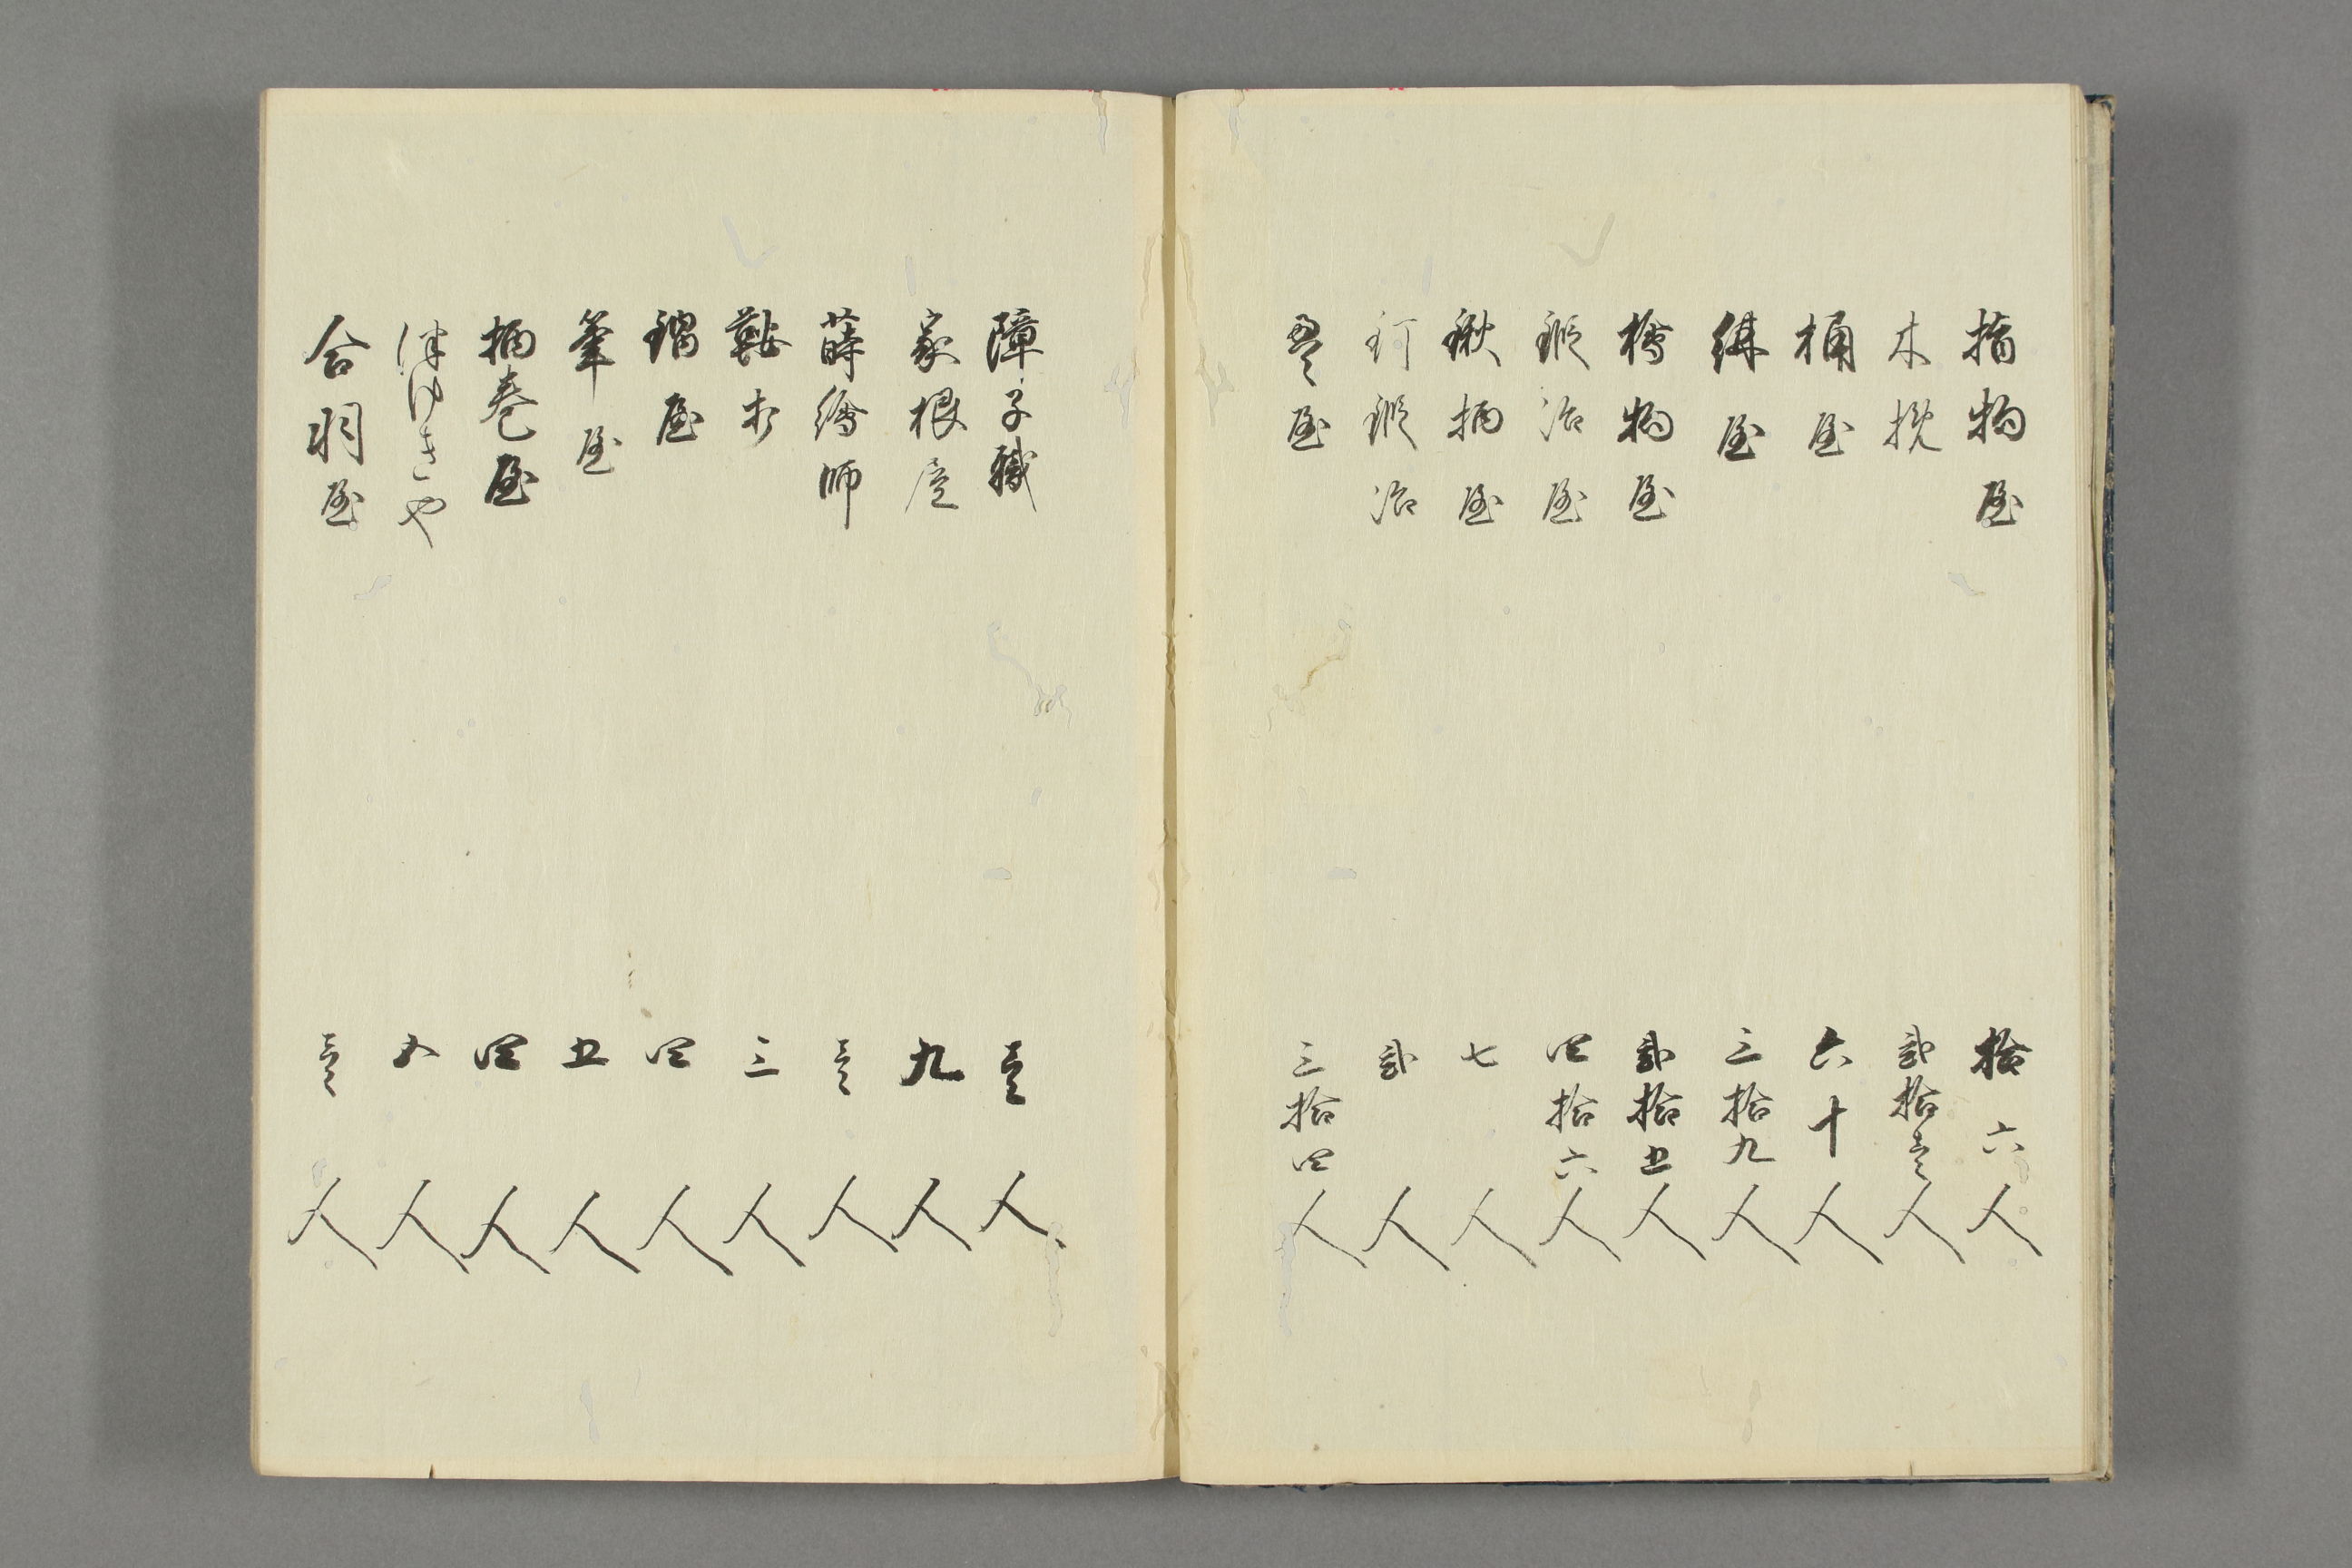 指物屋 拾六人
木挽 弐拾壱人
桶屋 六十人
屋 三拾九人
檜物屋 弐拾五人
鍛治屋 四拾六人
鍬柄屋 七人
釘鍛治 弐人
畳屋 三拾四人
障子職 壱人
家根屋 九人
蒔繪師 壱人
打 三人
屋 四人
筆屋 五人
柄巻屋 四人
ゆきや 五人
合羽屋 壱人